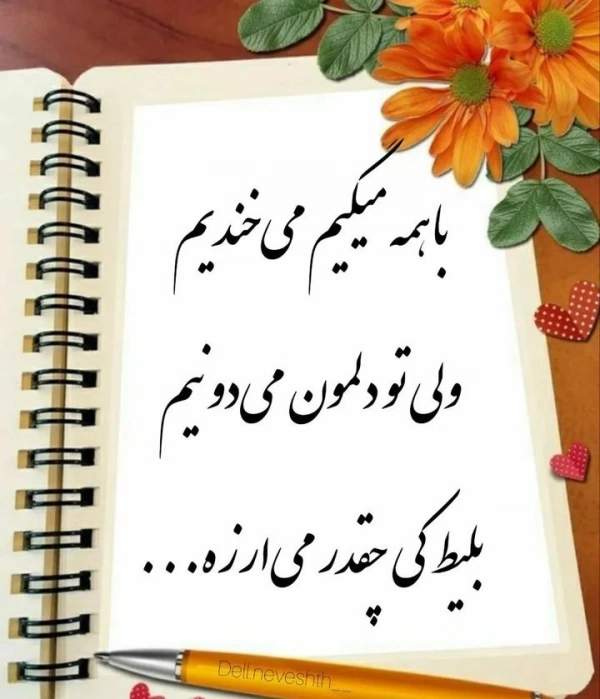 باهمه میگیم می‌خندیم
ولی تو دلمون می‌دونیم
بلیط کی چقدر می‌ارزه...
Dell neveshth__